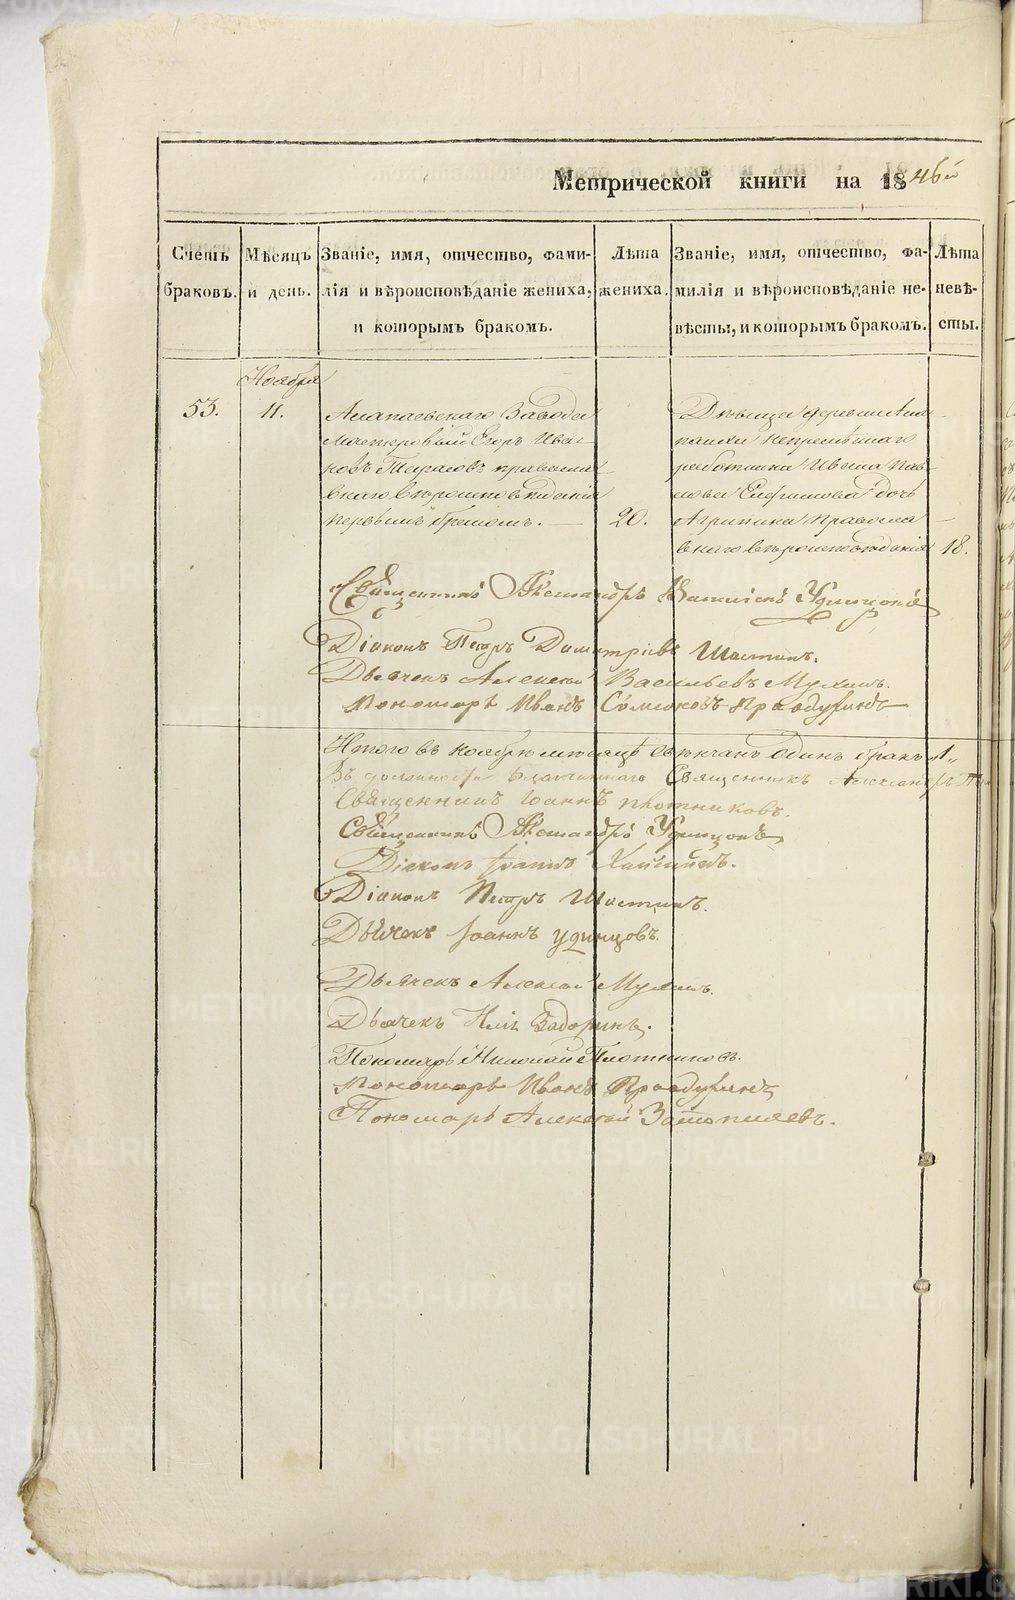 Метрической книги на 1846й
Счетъ браковъ.
Мѣсяцъ и день.
Званіе, имя, отчество, фами-
лія и вѣроисповѣданіе жениха,
и которымъ бракомъ.
Лѣта жениха.
Званіе, имя, отчество, фа-
милія и вѣроисповѣданіе не-
вѣсты, и которымъ бракомъ.
Лѣта невѣ-
сты.
Ноября
53.
11.
Алапаевскаго Завода
мастеровый Егоръ Ива-
новъ Тарасовъ православ
наго вѣроисповѣданія
первымъ бракомъ.
20.
Дѣвица деревни Ала
паихи непремѣннаго
работника Ивана Пав
лова Ефимова дочь
Агрипина Правосла
внаго вѣроисповѣданія
18.
Священникъ Александръ Удинцовъ
Діаконъ Петръ Димитріевъ Шастинъ.
Дьячекъ Алексѣй Васильевъ Мухинъ.
Пономарь Иванъ
Итого въ ноябрѣ мѣсяцѣ вѣнчанъ одинъ бракъ 1.
Въ должности Благочиннаго Священникъ Александръ
Священникъ Іоаннъ Плотниковъ.
Священникъ Александръ Удинцовъ
Діаконъ Іоаннъ
Діаконъ Петръ Шастинъ.
Дьячекъ Іоаннъ Удинцовъ.
Дьячекъ Алексѣй Мухинъ.
Дьячекъ Нилъ Задоринъ.
Пономарь Николай Плотниковъ.
Пономарь Иванъ
Пономарь Алексѣй Затопляевъ.
METRIKI.GASO-URAL.RU